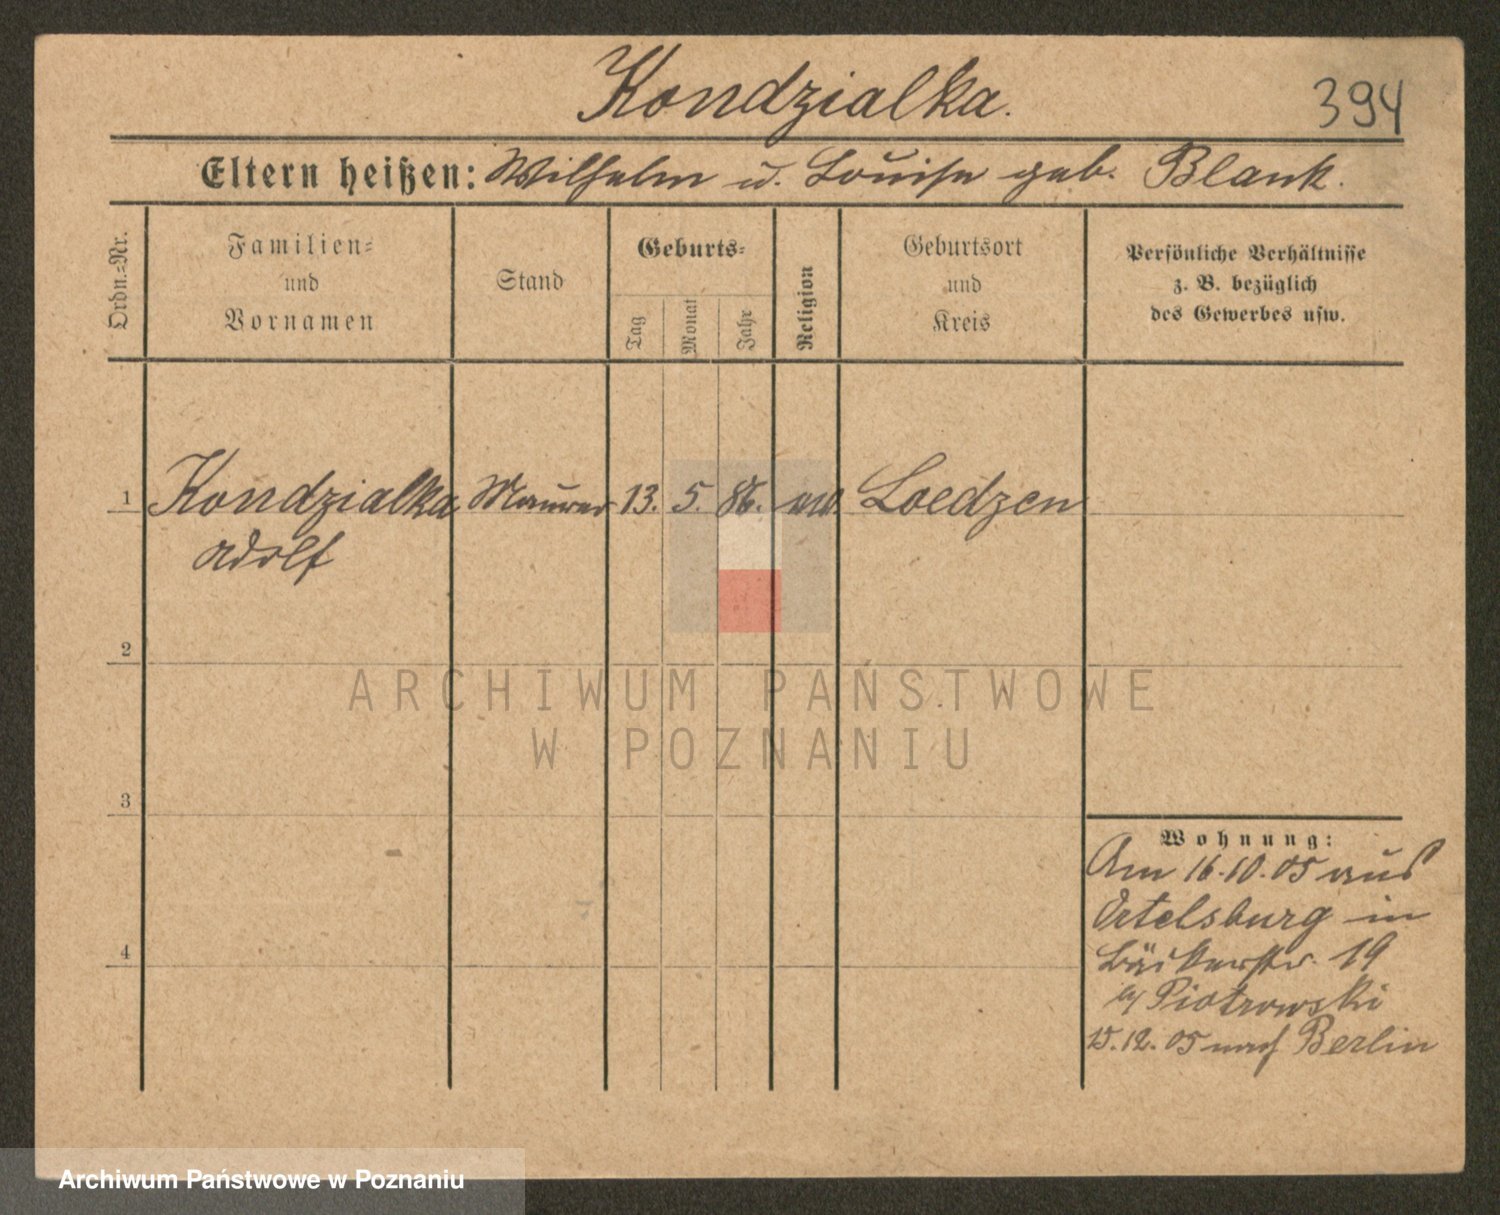 Kondzialka.
394
Eltern heißen: Wilhelm u. Louise geb. Blank.
Ordn.=Nr.
Familien=
und
Vornamen
Stand
Geburts=
Tag
Monat
Jahr
Religion
Geburtsort
und
Kreis
Persönliche Verhältnisse
z. B. bezüglich
des Gewerbes usw.
1 Kondzialka Maurer 13. 5. 86. ev. Loedzen
Adolf
2
3
4
ARCHIWUM PAŃSTWOWE
W POZNANIU
Wohnung:
Am 16.10.05 aus
Ortelsburg in
Bäckerstr. 19
b/ Piotrowski
15.12.05 nach Berlin
Archiwum Państwowe w Poznaniu